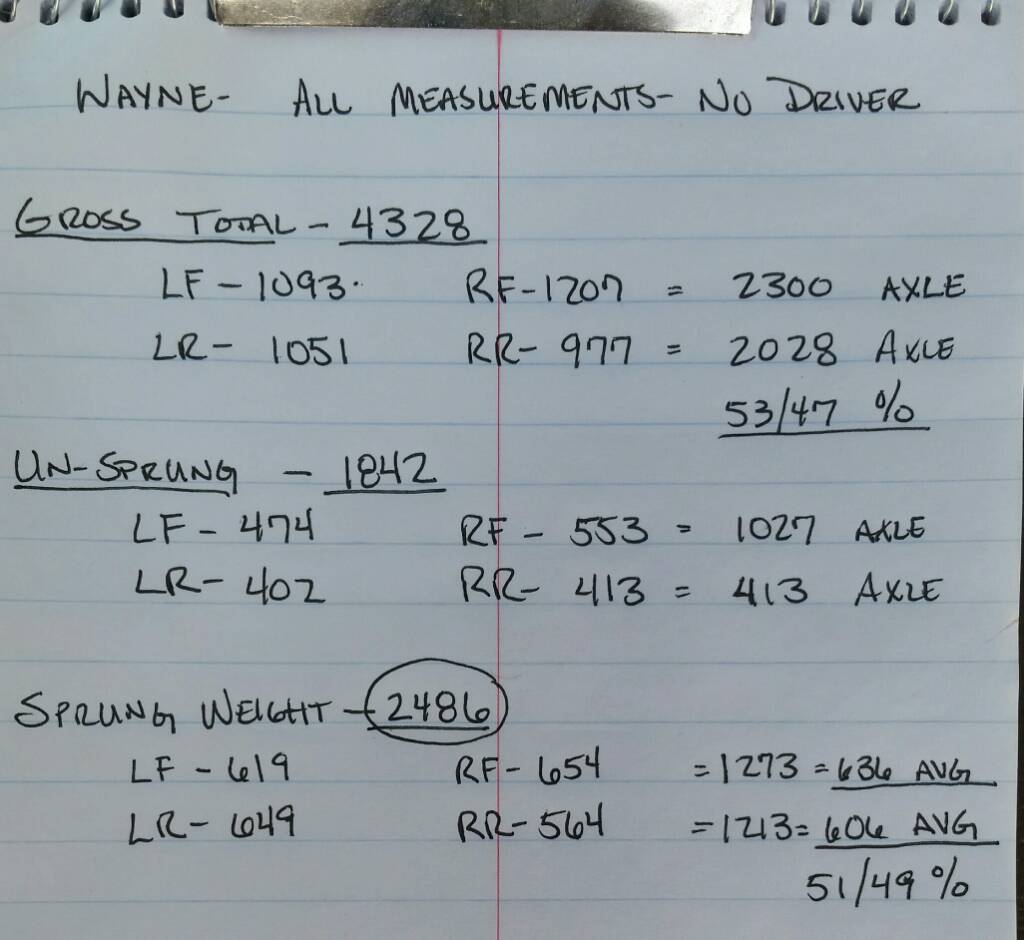 WAYNE- ALL MEASUREMENTS- NO DRIVER
GROSS TOTAL - 4328
LF - 1093. RF-1207 = 2300 AXLE
LR- 1051 RR- 977 = 2028 AXLE
53/47 %
UN-SPRUNG - 1842
LF - 474 RF - 553 = 1027 AXLE
LR- 402 RR- 413 = 413 AXLE
SPRUNG WEIGHT - 2486
LF - 619 RF- 654 = 1273 = 636 AVG
LR- 649 RR- 564 = 1213 = 606 AVG
51/49 %